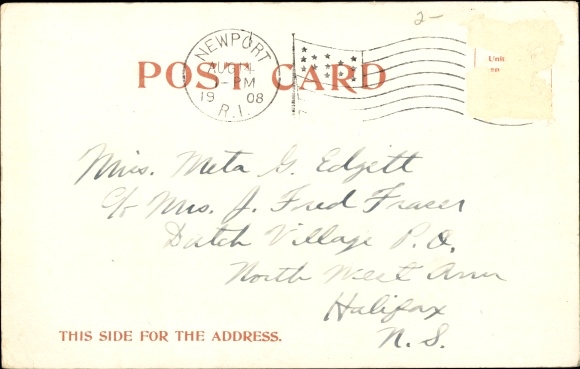 2-
NEWPORT
AUG 1
-PM
1908
R.I.
POST CARD
Unit
Miss. Meta G. Edgett
c/o Mrs. J. Fred Fraser
Dutch Village P.O.
North West Arm
Halifax
N.S.
THIS SIDE FOR THE ADDRESS.